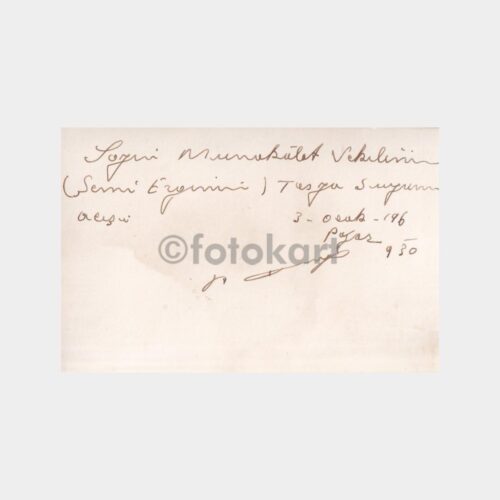 Sayın Munakâlet Vekilinin
(Semi Erginin) Taşra Suyunu
açışı 3 - ocak - 196
Pazar
9 30
©fotokart